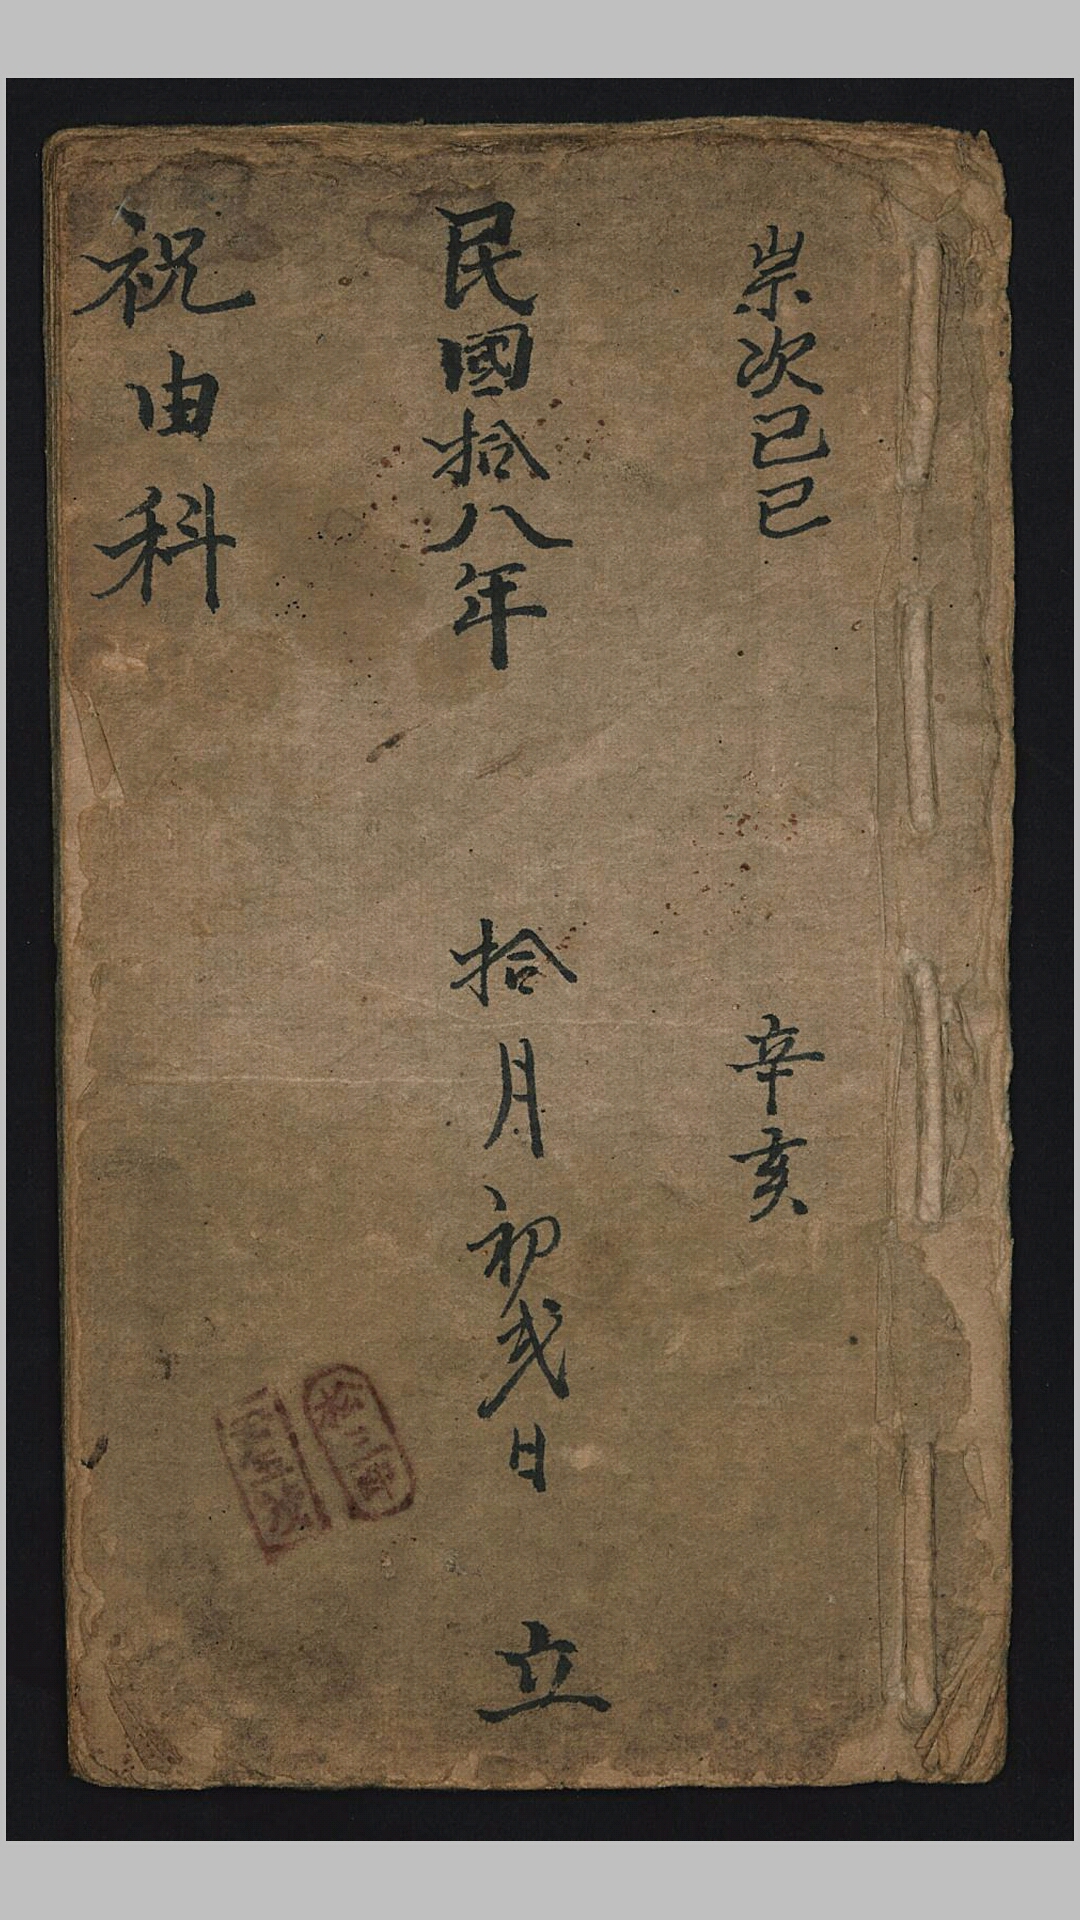 次己巳 辛亥
民國拾八年 拾月初弍日 立
祝由科